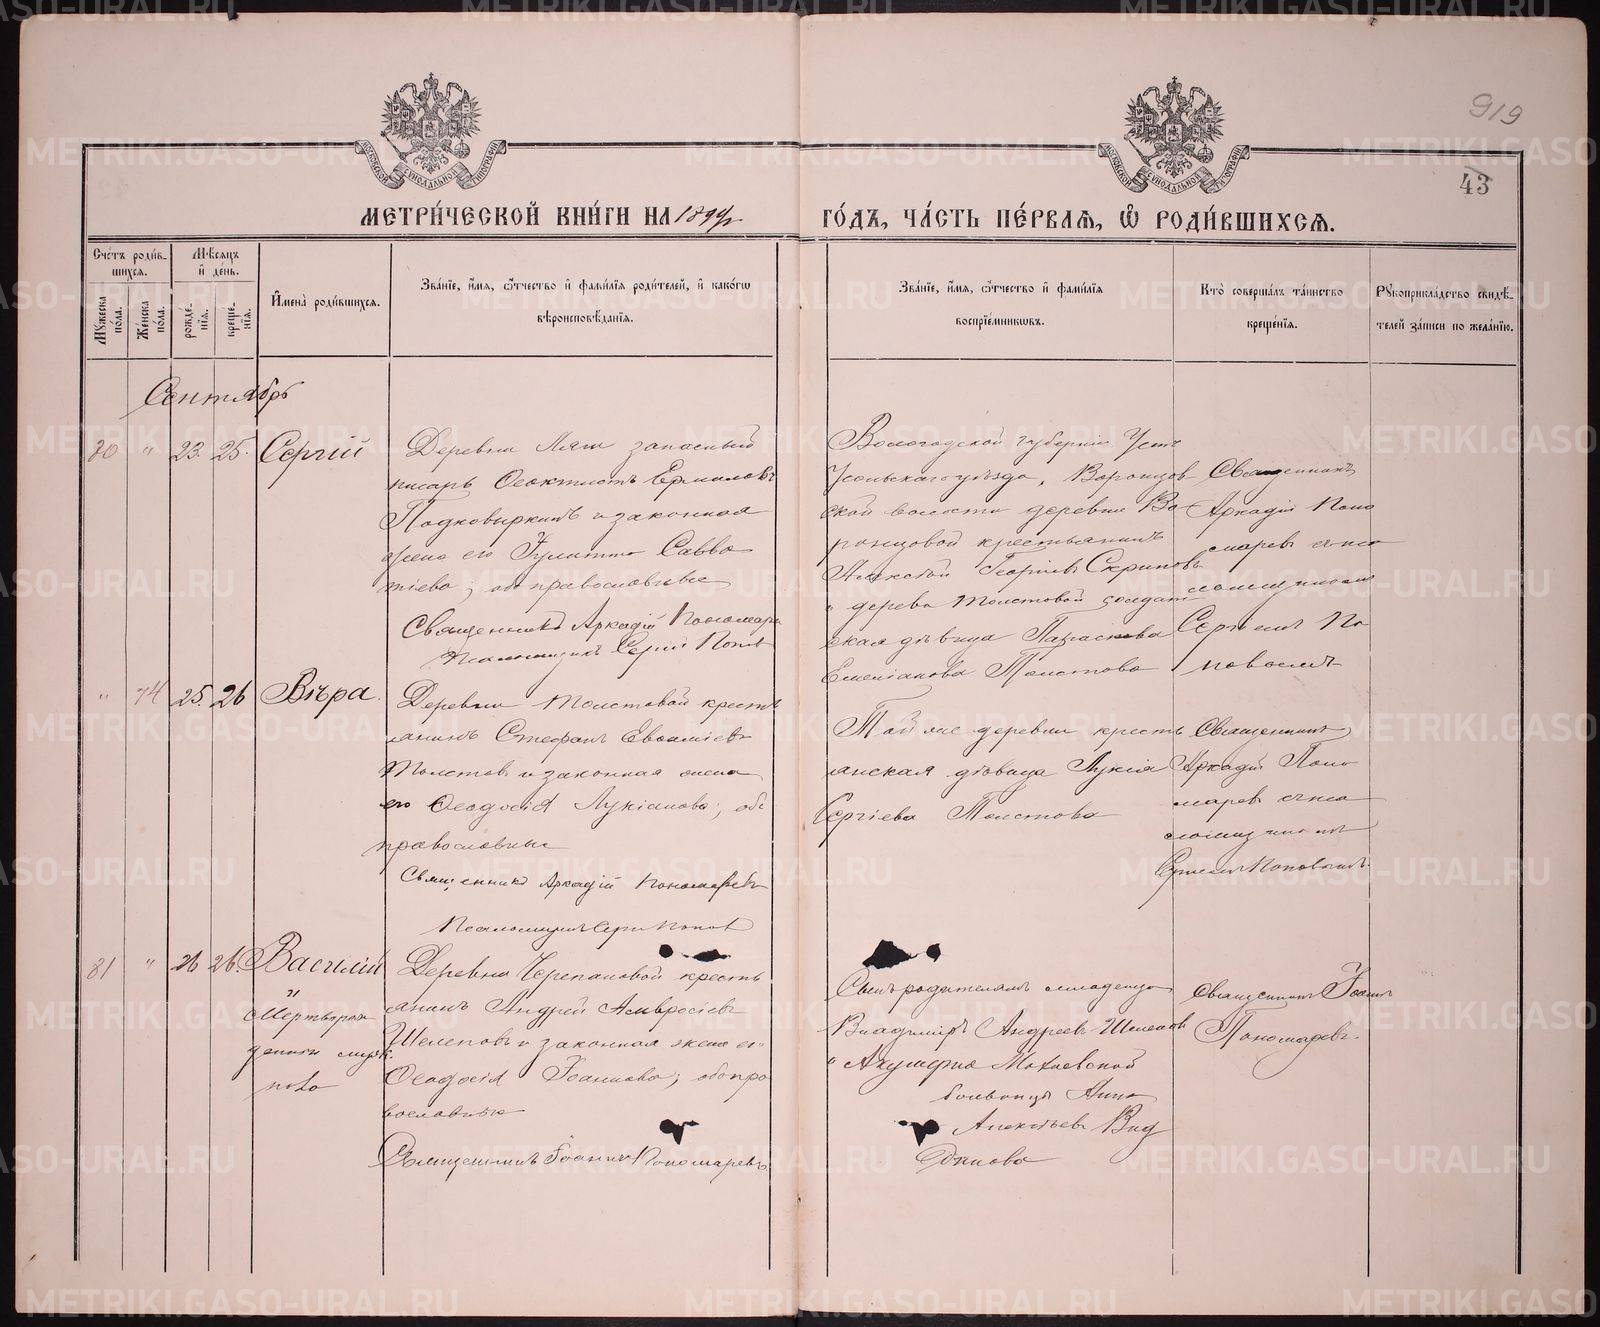 919
43
МЕТРИ́ЧЕСКОЙ КНИ́ГИ НА 1894 г
ГО́ДЪ, ЧА́СТЬ ПЕ́РВАѦ, Ѽ РОДИ́ВШИХСѦ.
Сче́тъ роди́вшихся.
Му́жеска по́ла.
Же́нска по́ла.
Мѣ́сѧцъ и҆ де́нь.
рожде́нїѧ.
креще́нїѧ.
И҆мена̀ роди́вшихсѧ.
Зва́нїе, и҆́мѧ, ѻ҆́тчество и҆ фамилїѧ роди́телей, и҆ како́гѡ
вѣроисповѣ́данїѧ.
Зва́нїе, и҆́мѧ, ѻ҆́тчество и҆ фами́лїѧ
воспрїе́мникѡвъ.
Кто̀ соверша́лъ та́инство
креще́нїѧ.
Рꙋкоприкла́дство свидѣ́телей за́писи по жела́нїю.
Сентябрь
80 " 23. 25. Сергій
Деревни Ляги запасный
писарь Ѳеоктистъ Ермиловъ
Подковыркинъ и законная
жена его Иулитта Савва
тіева; оба православные
Священникъ Аркадій Пономарев
Псаломщикъ Сергій Поповъ
Вологодской губерніи Усть
Усольскаго уѣзда, Воронцов
ской волости деревни Во
ронцовой крестьянинъ
Алексѣй Георгіевъ Скриповъ
и деревни Толстовой солдат
ская дѣвица Параскева
Емеліанова Толстова
Священникъ
Аркадій Поно
маревъ съ пса
ломщикомъ
Сергіемъ По
повымъ
" 74 25. 26 Вѣра.
Деревни Толстовой кресть
янинъ Стефанъ Евѳиміевъ
Толстовъ и законная жена
его Ѳеодосія Лукіанова; оба
православные
Священникъ Аркадій Пономаревъ
Псаломщикъ Сергій Поповъ
Той же деревни кресть
янская дѣвица Лукія
Сергіева Толстова
Священникъ
Аркадій Поно
маревъ съ пса
ломщикомъ
Сергіемъ Поповымъ.
81 " 26 26. Василій
и
Мертворож
денъ
Деревни Черепановой кресть
янинъ Андрей Амвросіевъ
Шелеповъ и законная жена его
Ѳеодосія Іоаннова; оба пра
вославные
Священникъ Іоаннъ Пономаревъ
Сынъ родителямъ младенца
Владиміръ Андреевъ Шелепов
и Акушерка
больницы Анна
Алексѣева
Священникъ Іоаннъ
Пономаревъ.
METRIKI.GASO-URAL.RU